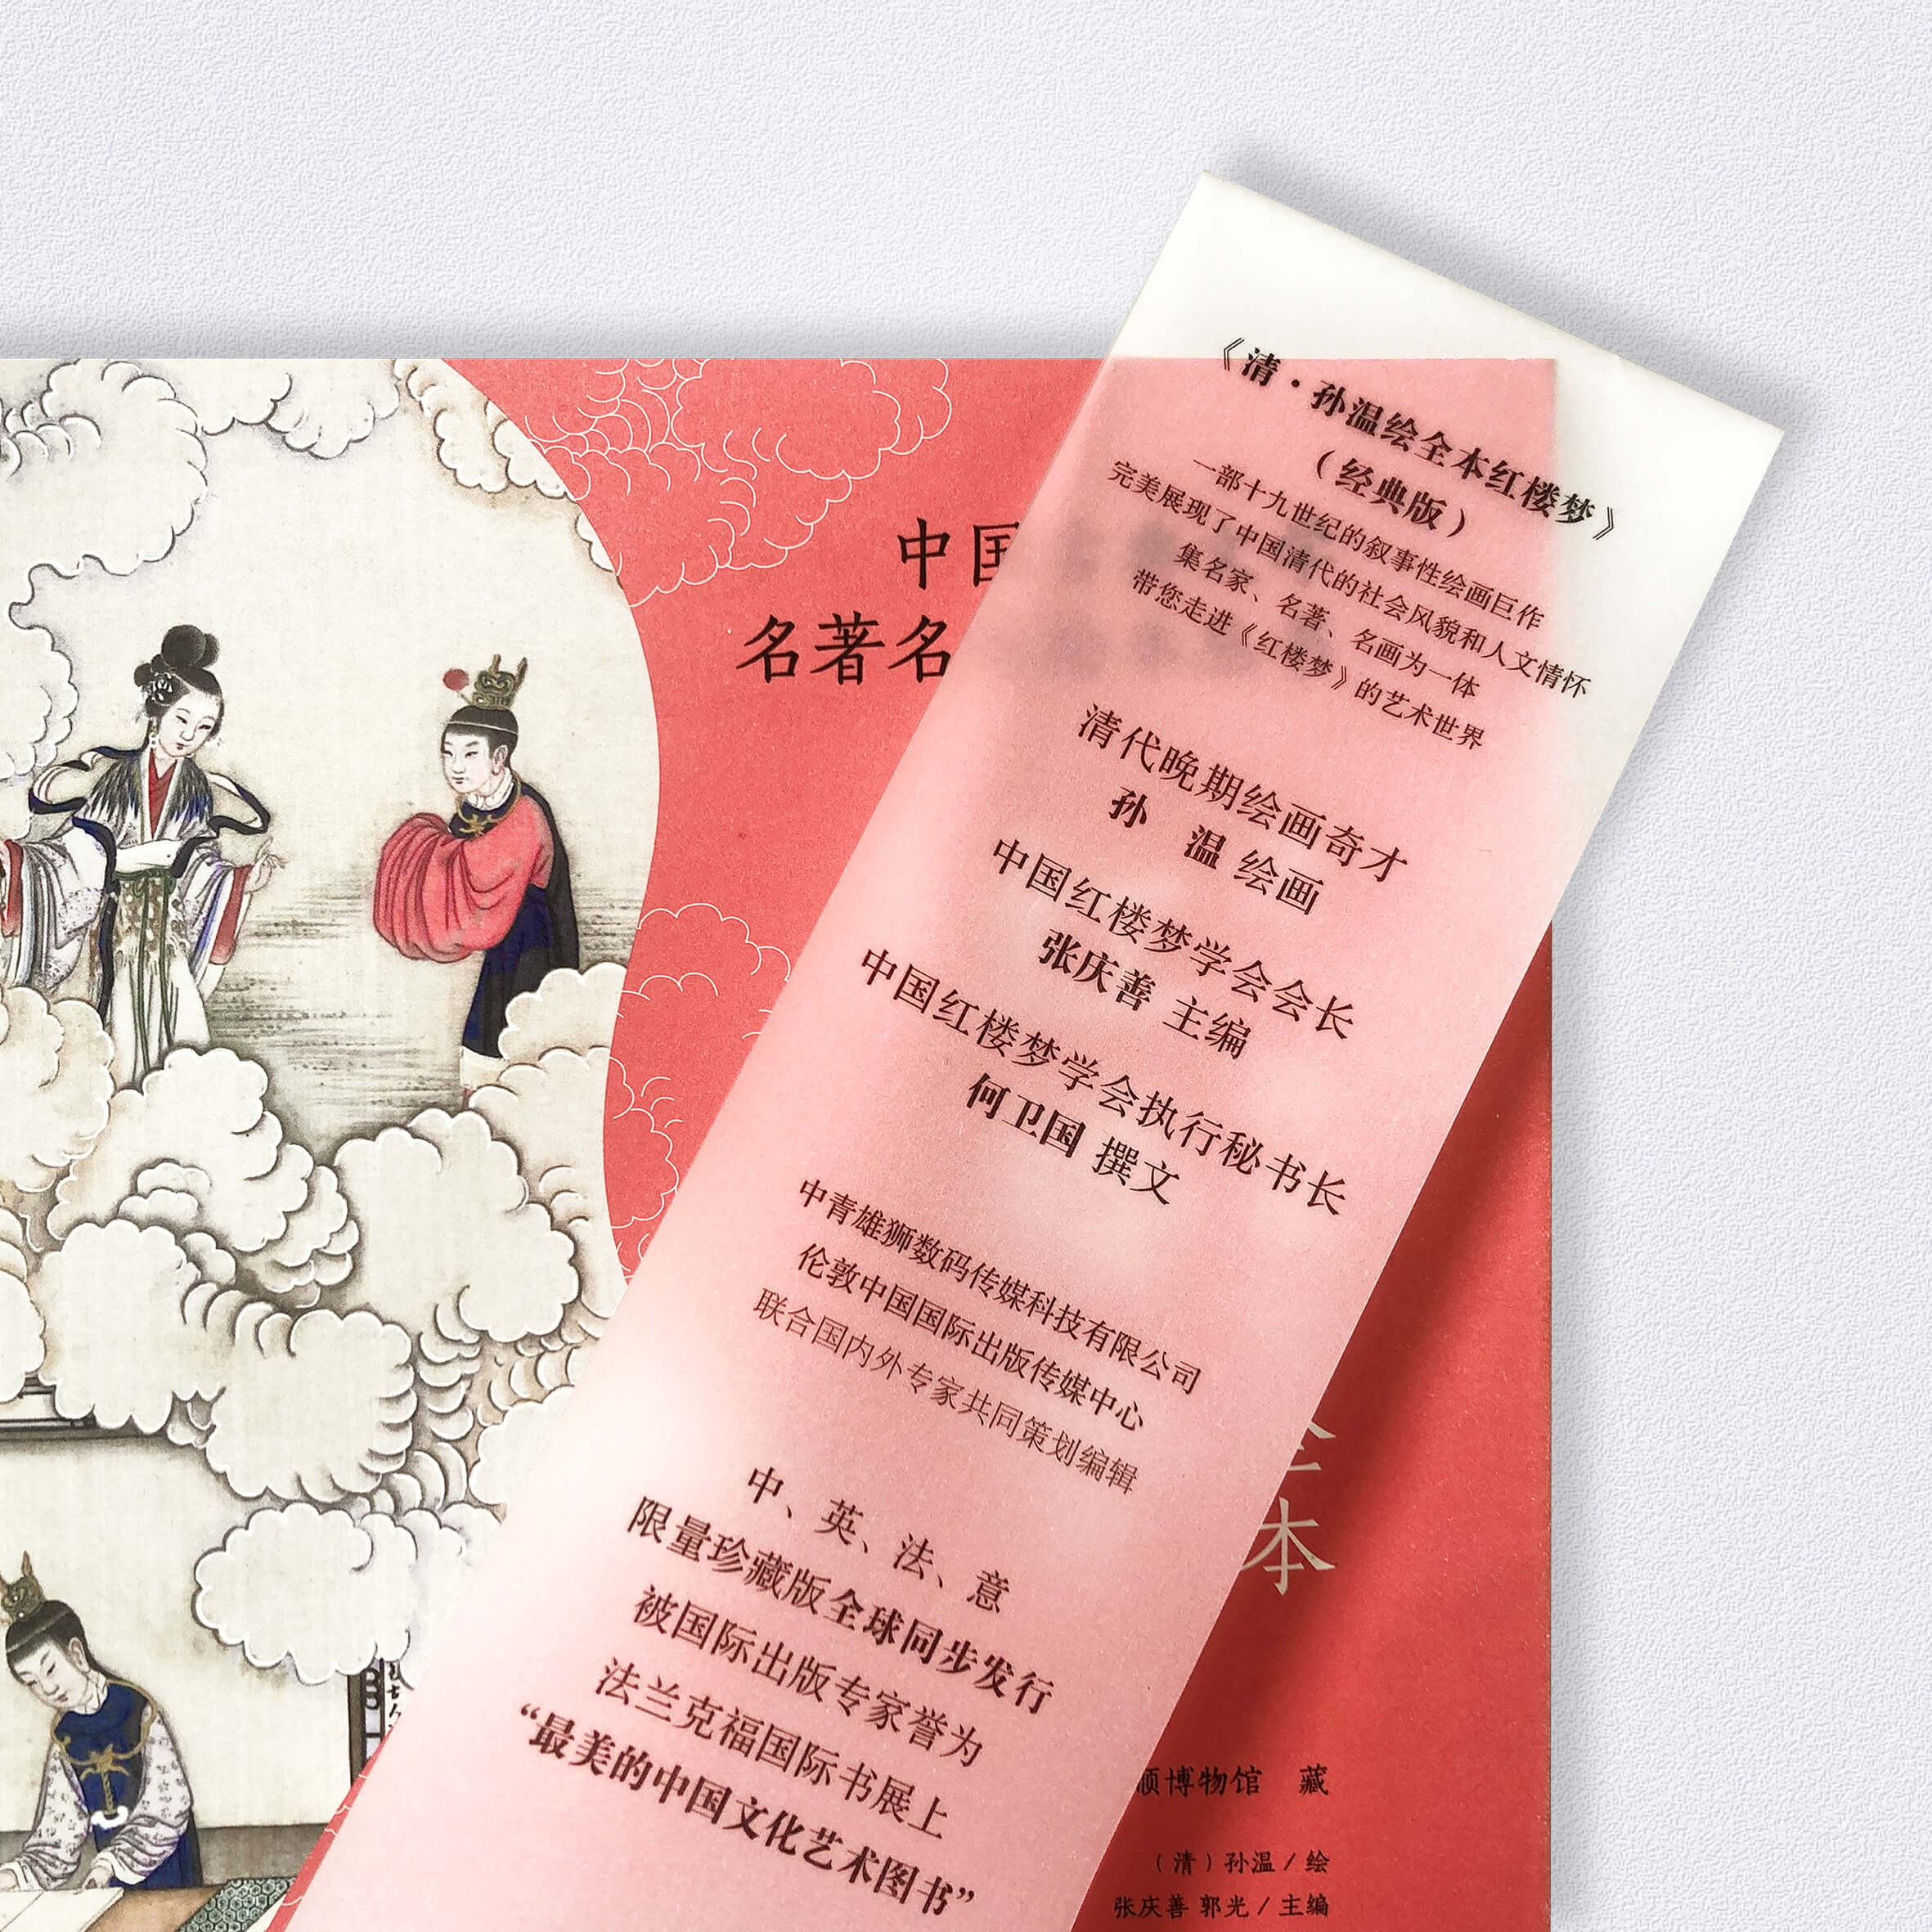 《清·孙温绘全本红楼梦》
（经典版）
一部十九世纪的叙事性绘画巨作
完美展现了中国清代的社会风貌和人文情怀
集名家、名著、名画为一体
带您走进《红楼梦》的艺术世界
清代晚期绘画奇才
孙 温 绘画
中国红楼梦学会会长
张庆善 主编
中国红楼梦学会执行秘书长
何卫国 撰文
中青雄狮数码传媒科技有限公司
伦敦中国国际出版传媒中心
联合国内外专家共同策划编辑
中、英、法、意
限量珍藏版全球同步发行
被国际出版专家誉为
法兰克福国际书展上
“最美的中国文化艺术图书”
中国
名著名
本
顺博物馆 藏
（清）孙温／绘
张庆善 郭光／主编